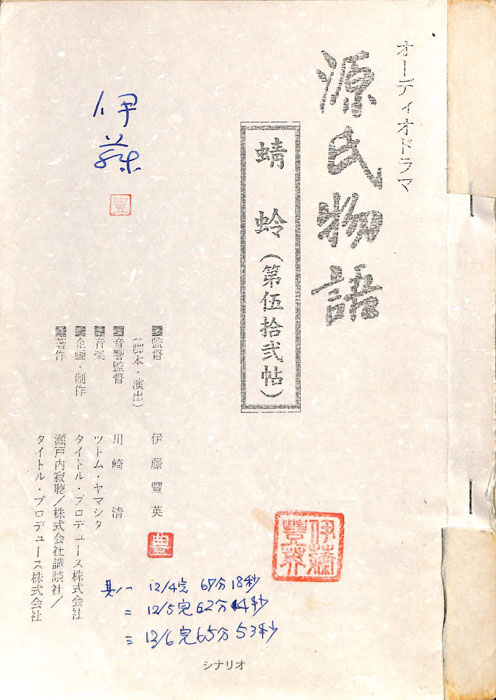 オーディオドラマ
源氏物語
蜻蛉(第伍拾弐帖)
伊藤
豊
監督 伊藤豐英
(脚本・演出)
音響監督 川崎清
音楽 ツトム・ヤマシタ
企画・制作 タイトル・プロデュース株式会社
著作 瀬戸内寂聴/株式会社講談社/
タイトル・プロデュース株式会社
豊
伊藤豐英
其ノ一 12/4完 67分18秒
〃二 12/5完 62分44秒
〃三 12/6完 65分53秒
シナリオ